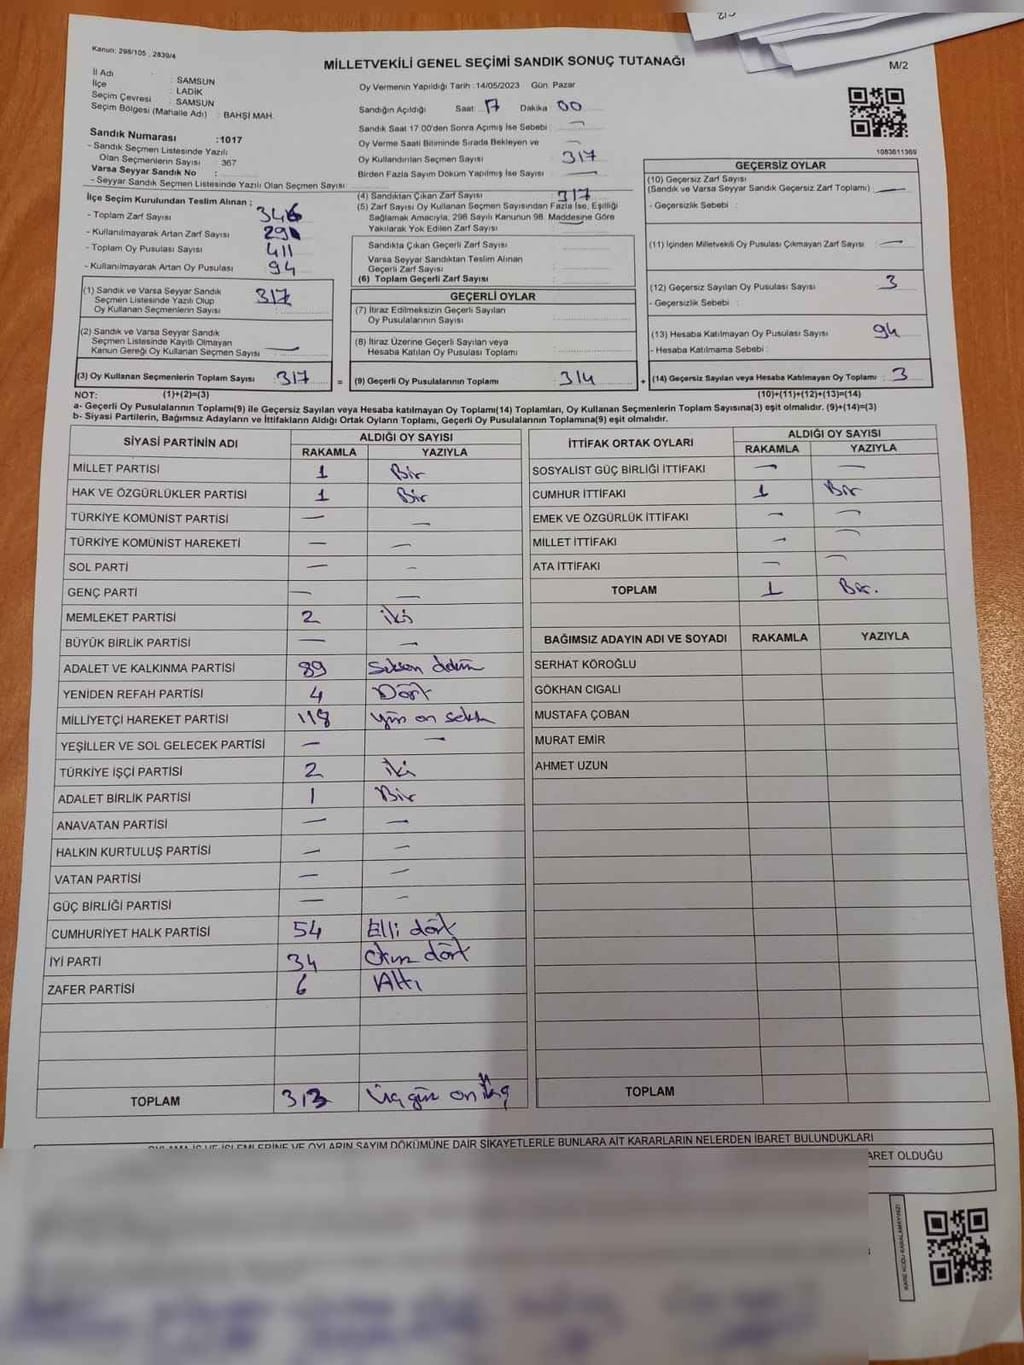 Kanun: 298/105 , 2839/4
MİLLETVEKİLİ GENEL SEÇİMİ SANDIK SONUÇ TUTANAĞI
M/2
İl Adı : SAMSUN
İlçe : LADİK
Seçim Çevresi : SAMSUN
Seçim Bölgesi (Mahalle Adı) : BAHŞİ MAH.
Oy Vermenin Yapıldığı Tarih : 14/05/2023 Gün: Pazar
Sandığın Açıldığı Saat: 17 Dakika: 00
Sandık Saat 17:00'den Sonra Açımış İse Sebebi : —
Oy Verme Saati Bitiminde Sırada Bekleyen ve
Oy Kullandırılan Seçmen Sayısı : 317
Birden Fazla Sayım Döküm Yapılmış İse Sayısı : —
1083611369
Sandık Numarası :1017
- Sandık Seçmen Listesinde Yazılı
Olan Seçmenlerin Sayısı : 367
Varsa Seyyar Sandık No :
- Seyyar Sandık Seçmen Listesinde Yazılı Olan Seçmen Sayısı:
İlçe Seçim Kurulundan Teslim Alınan :
- Toplam Zarf Sayısı : 346
- Kullanılmayarak Artan Zarf Sayısı : 29
- Toplam Oy Pusulası Sayısı : 411
- Kullanılmayarak Artan Oy Pusulası : 94
(1) Sandık ve Varsa Seyyar Sandık
Seçmen Listesinde Yazılı Olup
Oy Kullanan Seçmenlerin Sayısı : 317
(2) Sandık ve Varsa Seyyar Sandık
Seçmen Listesinde Kayıtlı Olmayan
Kanun Gereği Oy Kullanan Seçmen Sayısı : —
(3) Oy Kullanan Seçmenlerin Toplam Sayısı : 317
(4) Sandıktan Çıkan Zarf Sayısı : 317
(5) Zarf Sayısı Oy Kullanan Seçmen Sayısından Fazla İse, Eşitliği
Sağlamak Amacıyla, 298 Sayılı Kanunun 98. Maddesine Göre
Yakılarak Yok Edilen Zarf Sayısı : —
Sandıkta Çıkan Geçerli Zarf Sayısı :
Varsa Seyyar Sandıktan Teslim Alınan
Geçerli Zarf Sayısı :
(6) Toplam Geçerli Zarf Sayısı :
GEÇERLİ OYLAR
(7) İtiraz Edilmeksizin Geçerli Sayılan
Oy Pusulalarının Sayısı :
(8) İtiraz Üzerine Geçerli Sayılan veya
Hesaba Katılan Oy Pusulası Toplamı :
= (9) Geçerli Oy Pusulalarının Toplamı : 314
GEÇERSİZ OYLAR
(10) Geçersiz Zarf Sayısı
(Sandık ve Varsa Seyyar Sandık Geçersiz Zarf Toplamı) : —
- Geçersizlik Sebebi :
(11) İçinden Milletvekili Oy Pusulası Çıkmayan Zarf Sayısı : —
(12) Geçersiz Sayılan Oy Pusulası Sayısı : 3
- Geçersizlik Sebebi :
(13) Hesaba Katılmayan Oy Pusulası Sayısı : 94
- Hesaba Katılmama Sebebi :
+ (14) Geçersiz Sayılan veya Hesaba Katılmayan Oy Toplamı : 3
NOT: (1)+(2)=(3) (10)+(11)+(12)+(13)=(14)
a- Geçerli Oy Pusulalarının Toplamı(9) ile Geçersiz Sayılan veya Hesaba katılmayan Oy Toplamı(14) Toplamları, Oy Kullanan Seçmenlerin Toplam Sayısına(3) eşit olmalıdır. (9)+(14)=(3)
b- Siyasi Partilerin, Bağımsız Adayların ve İttifakların Aldığı Ortak Oyların Toplamı, Geçerli Oy Pusulalarının Toplamına(9) eşit olmalıdır.
SİYASİ PARTİNİN ADI ALDIĞI OY SAYISI
RAKAMLA YAZIYLA
MİLLET PARTİSİ 1 Bir
HAK VE ÖZGÜRLÜKLER PARTİSİ 1 Bir
TÜRKİYE KOMÜNİST PARTİSİ — —
TÜRKİYE KOMÜNİST HAREKETİ — —
SOL PARTİ — —
GENÇ PARTİ — —
MEMLEKET PARTİSİ 2 iki
BÜYÜK BİRLİK PARTİSİ — —
ADALET VE KALKINMA PARTİSİ 89 Seksen dokuz
YENİDEN REFAH PARTİSİ 4 Dört
MİLLİYETÇİ HAREKET PARTİSİ 118 yüz on sekiz
YEŞİLLER VE SOL GELECEK PARTİSİ — —
TÜRKİYE İŞÇİ PARTİSİ 2 iki
ADALET BİRLİK PARTİSİ 1 Bir
ANAVATAN PARTİSİ — —
HALKIN KURTULUŞ PARTİSİ — —
VATAN PARTİSİ — —
GÜÇ BİRLİĞİ PARTİSİ — —
CUMHURİYET HALK PARTİSİ 54 Elli dört
İYİ PARTİ 34 Otuz dört
ZAFER PARTİSİ 6 Altı
TOPLAM 313 Üç yüz on
İTTİFAK ORTAK OYLARI ALDIĞI OY SAYISI
RAKAMLA YAZIYLA
SOSYALİST GÜÇ BİRLİĞİ İTTİFAKI — —
CUMHUR İTTİFAKI 1 Bir
EMEK VE ÖZGÜRLÜK İTTİFAKI — —
MİLLET İTTİFAKI — —
ATA İTTİFAKI — —
TOPLAM 1 Bir.
BAĞIMSIZ ADAYIN ADI VE SOYADI RAKAMLA YAZIYLA
SERHAT KÖROĞLU
GÖKHAN CIGALI
MUSTAFA ÇOBAN
MURAT EMİR
AHMET UZUN
TOPLAM
OYLAMA İŞ VE İŞLEMLERİNE VE OYLARIN SAYIM DÖKÜMÜNE DAİR ŞİKAYETLERLE BUNLARA AİT KARARLARIN NELERDEN İBARET BULUNDUKLARI
ARET OLDUĞU
KARE KODU KARALAMAYINIZ!